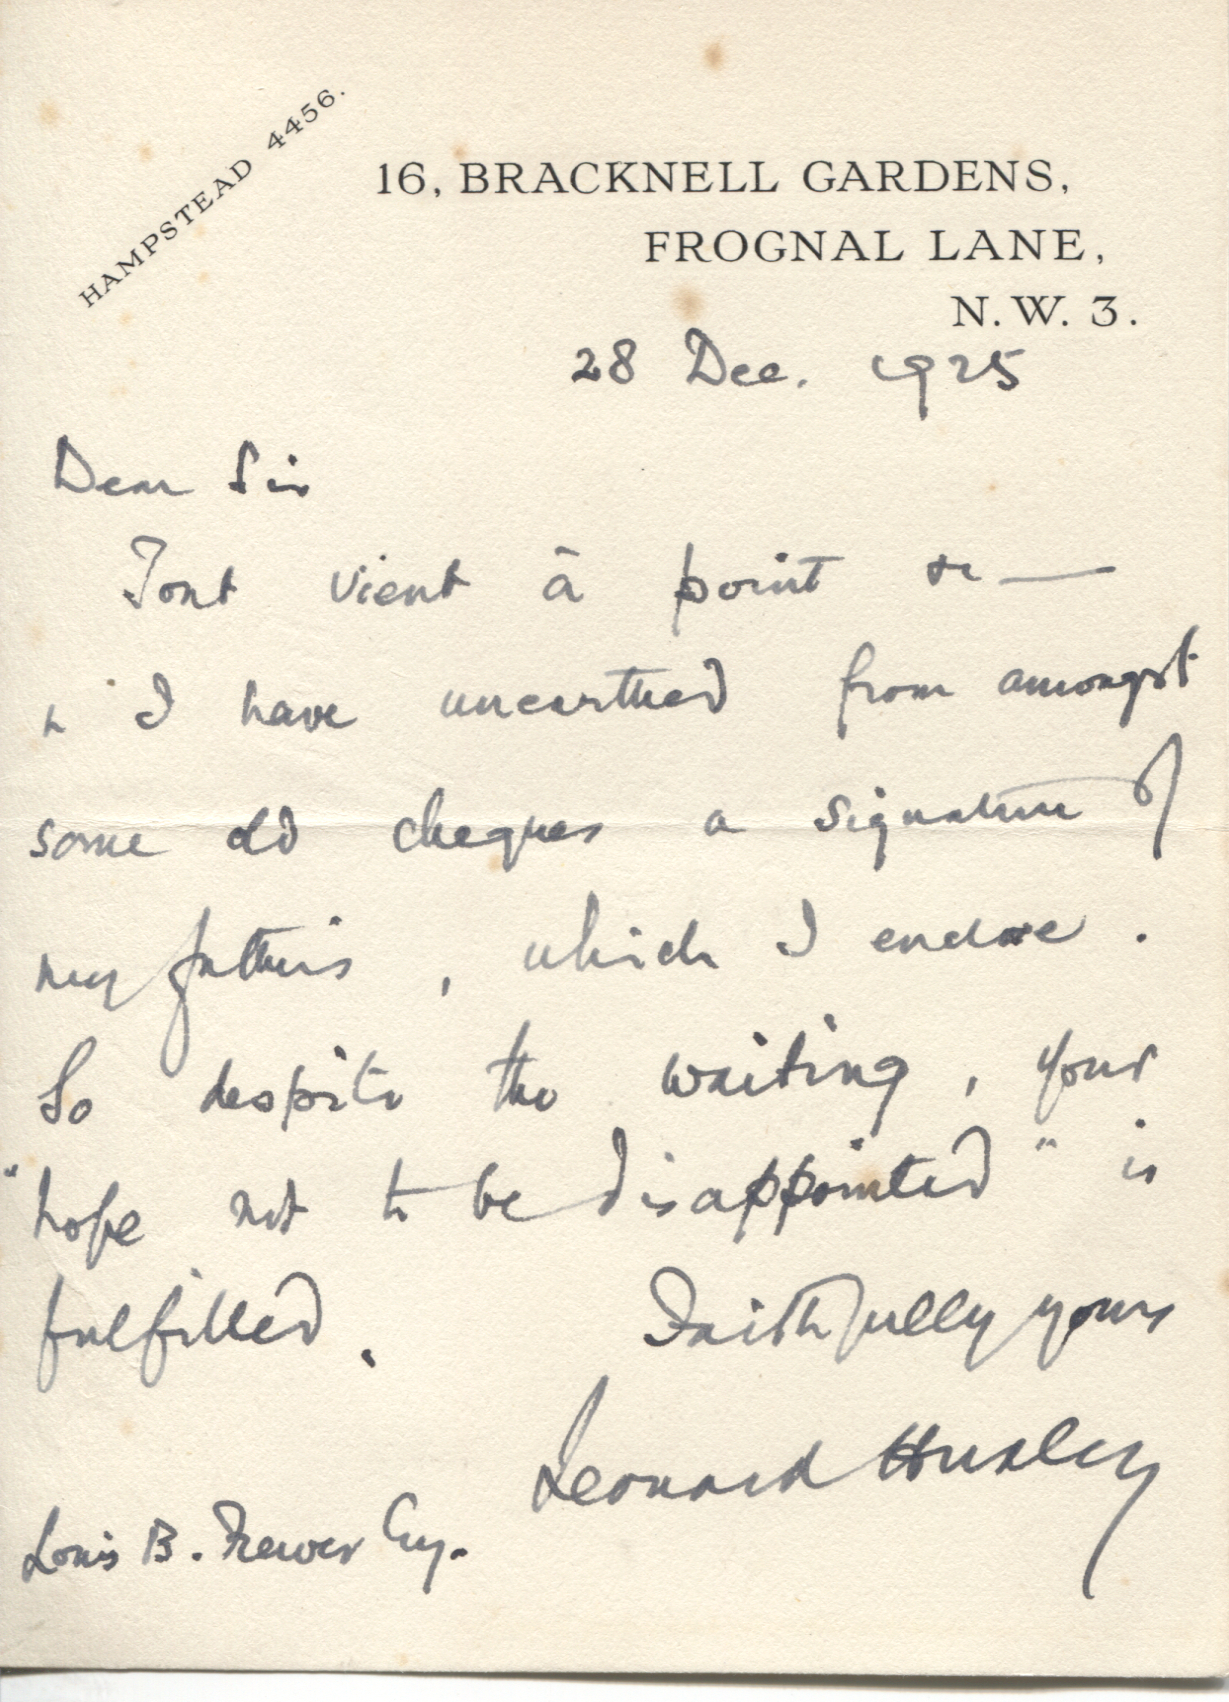 HAMPSTEAD 4456.
16, BRACKNELL GARDENS,
FROGNAL LANE,
N.W. 3.
28 Dec. 1925
Dear Sir
Tout vient à point &c —
& I have unearthed from amongst
some old cheques a signature of
my father's, which I enclose.
So despite the waiting, your
"hope not to be disappointed" is
fulfilled.
Faithfully yours
Leonard Huxley
Louis B. Frewer Esq.